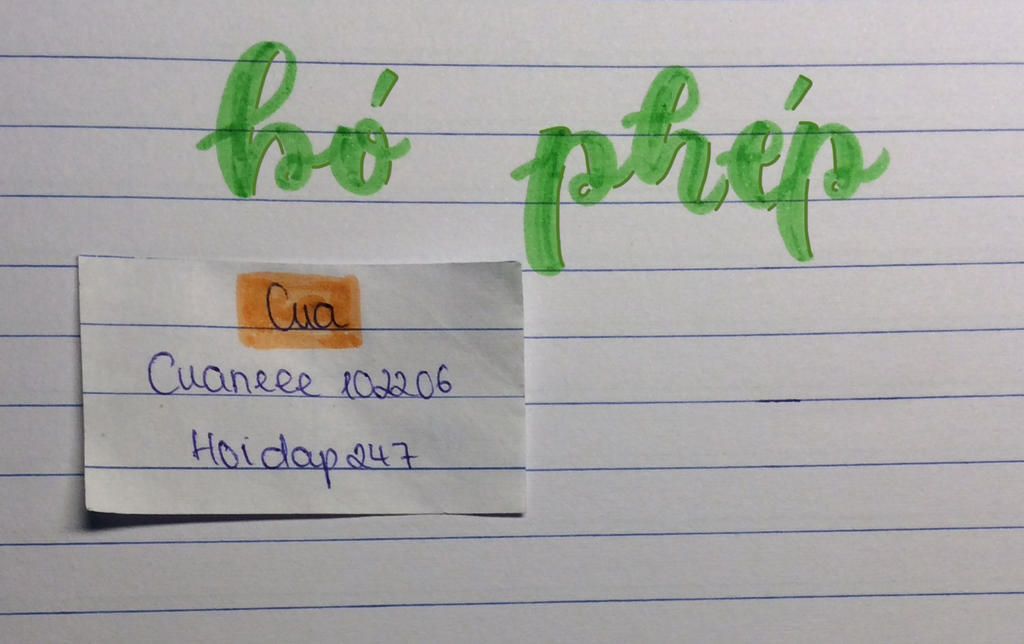 bó phép
Cua
Cuaneee 102206
Hoidap247